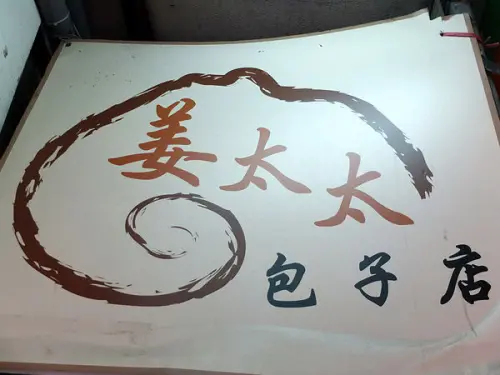 姜太太
包子店